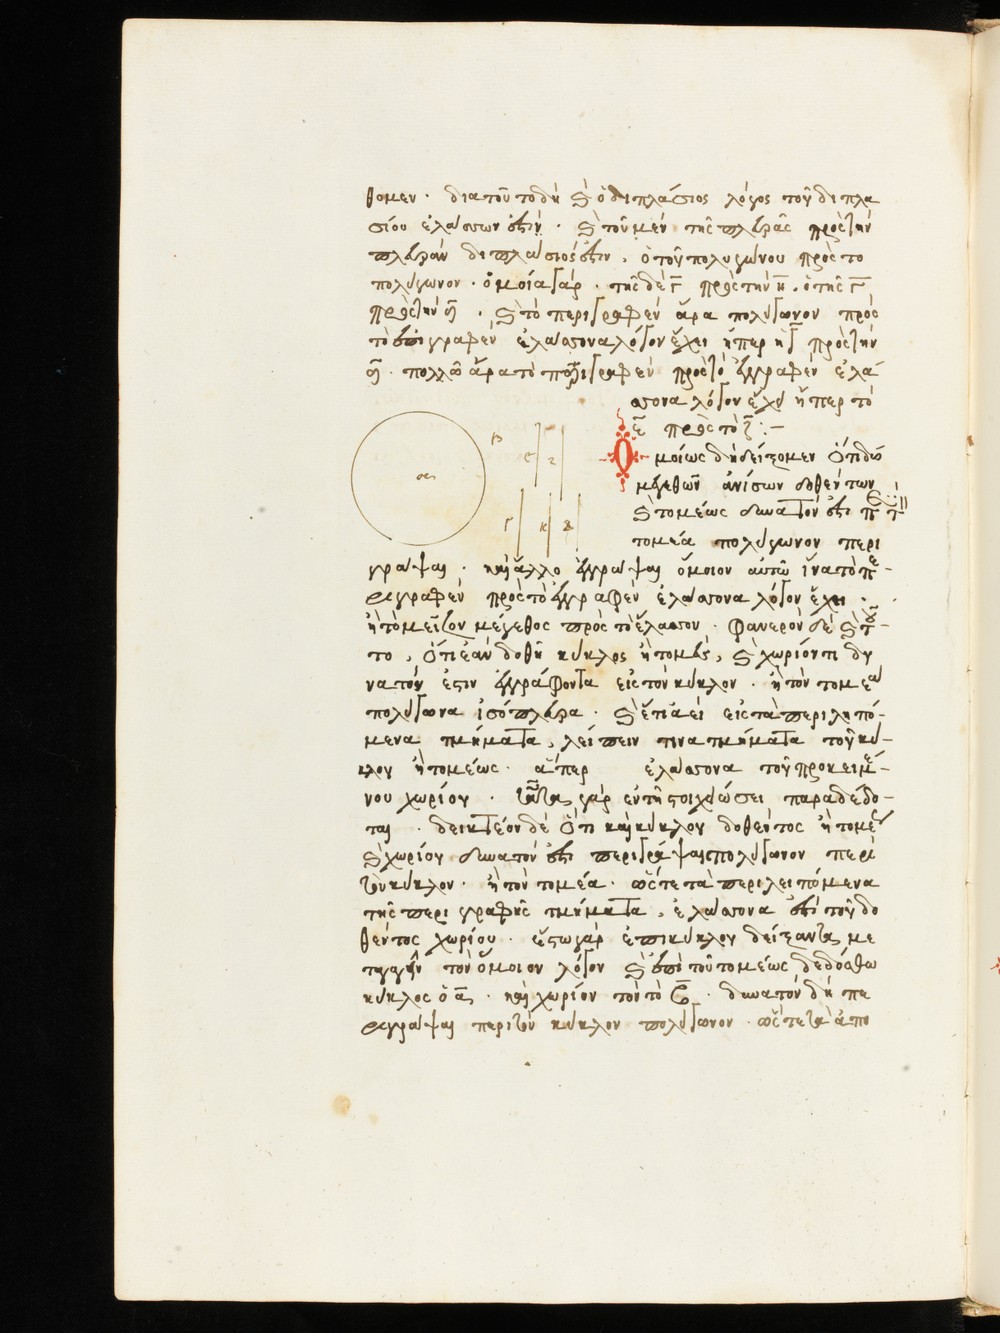 θομεν · διὰ τοῦτο δὴ καὶ ὁ διπλάσιος λόγος τοῦ διπλα
σίου ἐλάσσων ἐστὶν · καὶ τοῦ μὲν τῆς πλευρᾶς πρὸς τὴν
πλευρὰν διπλάσιός ἐστιν, ὁ τοῦ πολυγώνου πρὸς τὸ
πολύγωνον · ὅμοια γάρ · τῆς δὲ Γ πρὸς τὴν Η · ὁ τῆς Γ
πρὸς τὴν · καὶ τὸ περιγραφὲν ἄρα πολύγωνον πρὸς
τὸ ἐγγραφὲν ἐλάσσονα λόγον ἔχει ἤπερ ἡ Γ πρὸς τὴν
πολλῶ ἄρα τὸ περιγραφὲν πρὸς τὸ ἐγγραφὲν ἐλά
σσονα λόγον ἔχει ἤπερ τὸ
Ε πρὸς τὸ Ζ :–
Ὁμοίως δὴ δείξομεν ὅτι δύο
μεγεθῶν ἀνίσων δοθέντων
καὶ τομέως δυνατόν ἐστι περὶ τ
τομέα πολύγωνον περι
γράψαι · καὶ ἄλλο ἐγγράψαι ὅμοιον αὐτῶ ἵνα τὸ πε-
ριγραφὲν πρὸς τὸ ἐγγραφὲν ἐλάσσονα λόγον ἔχει ·
ἢ τὸ μεῖζον μέγεθος πρὸς τὸ ἔλασσον · Φανερὸν δὲ καὶ τοῦ-
το, ὅτι ἐὰν δοθῆ κύκλος ἢ τομεὺς, καὶ χωρίον τι δυ
νατόν ἐστιν ἐγγράφοντα εἰς τὸν κύκλον · ἢ τὸν τομέα
πολύγωνα ἰσόπλευρα · καὶ ἔτι ἀεὶ εἰς τὰ περιλιπό-
μενα τμήματα, λείπειν τινα τμήματα τοῦ κύ-
κλου ἢ τομέως · ἅπερ ἐλάσσονα τοῦ προκειμέ-
νου χωρίου · ταῦτα γὰρ ἐν τῆ στοιχειώσει παραδέδο-
ται · δεικτέον δὲ ὅτι καὶ κύκλου δοθέντος ἢ τομέως
καὶ χωρίου δυνατόν ἐστι περιγράψαι πολύγωνον περὶ
τὸν κύκλον · ἢ τὸν τομέα · ὥστε τὰ περιλειπόμενα
τῆς περιγραφῆς τμήματα, ἐλάσσονα ἐστὶ τοῦ δο
θέντος χωρίου · ἔστω γὰρ ἐπὶ κύκλου δείξαντας με
ταγαγεῖν τὸν ὅμοιον λόγον καὶ ἐπὶ τοῦ τομέως δεδόσθω
κύκλος ὁ α · καὶ χωρίον τι τὸ Β · δυνατὸν δὴ πε
ριγράψαι περὶ τὸν κύκλον πολύγωνον · ὥστε τὰ ἀπο